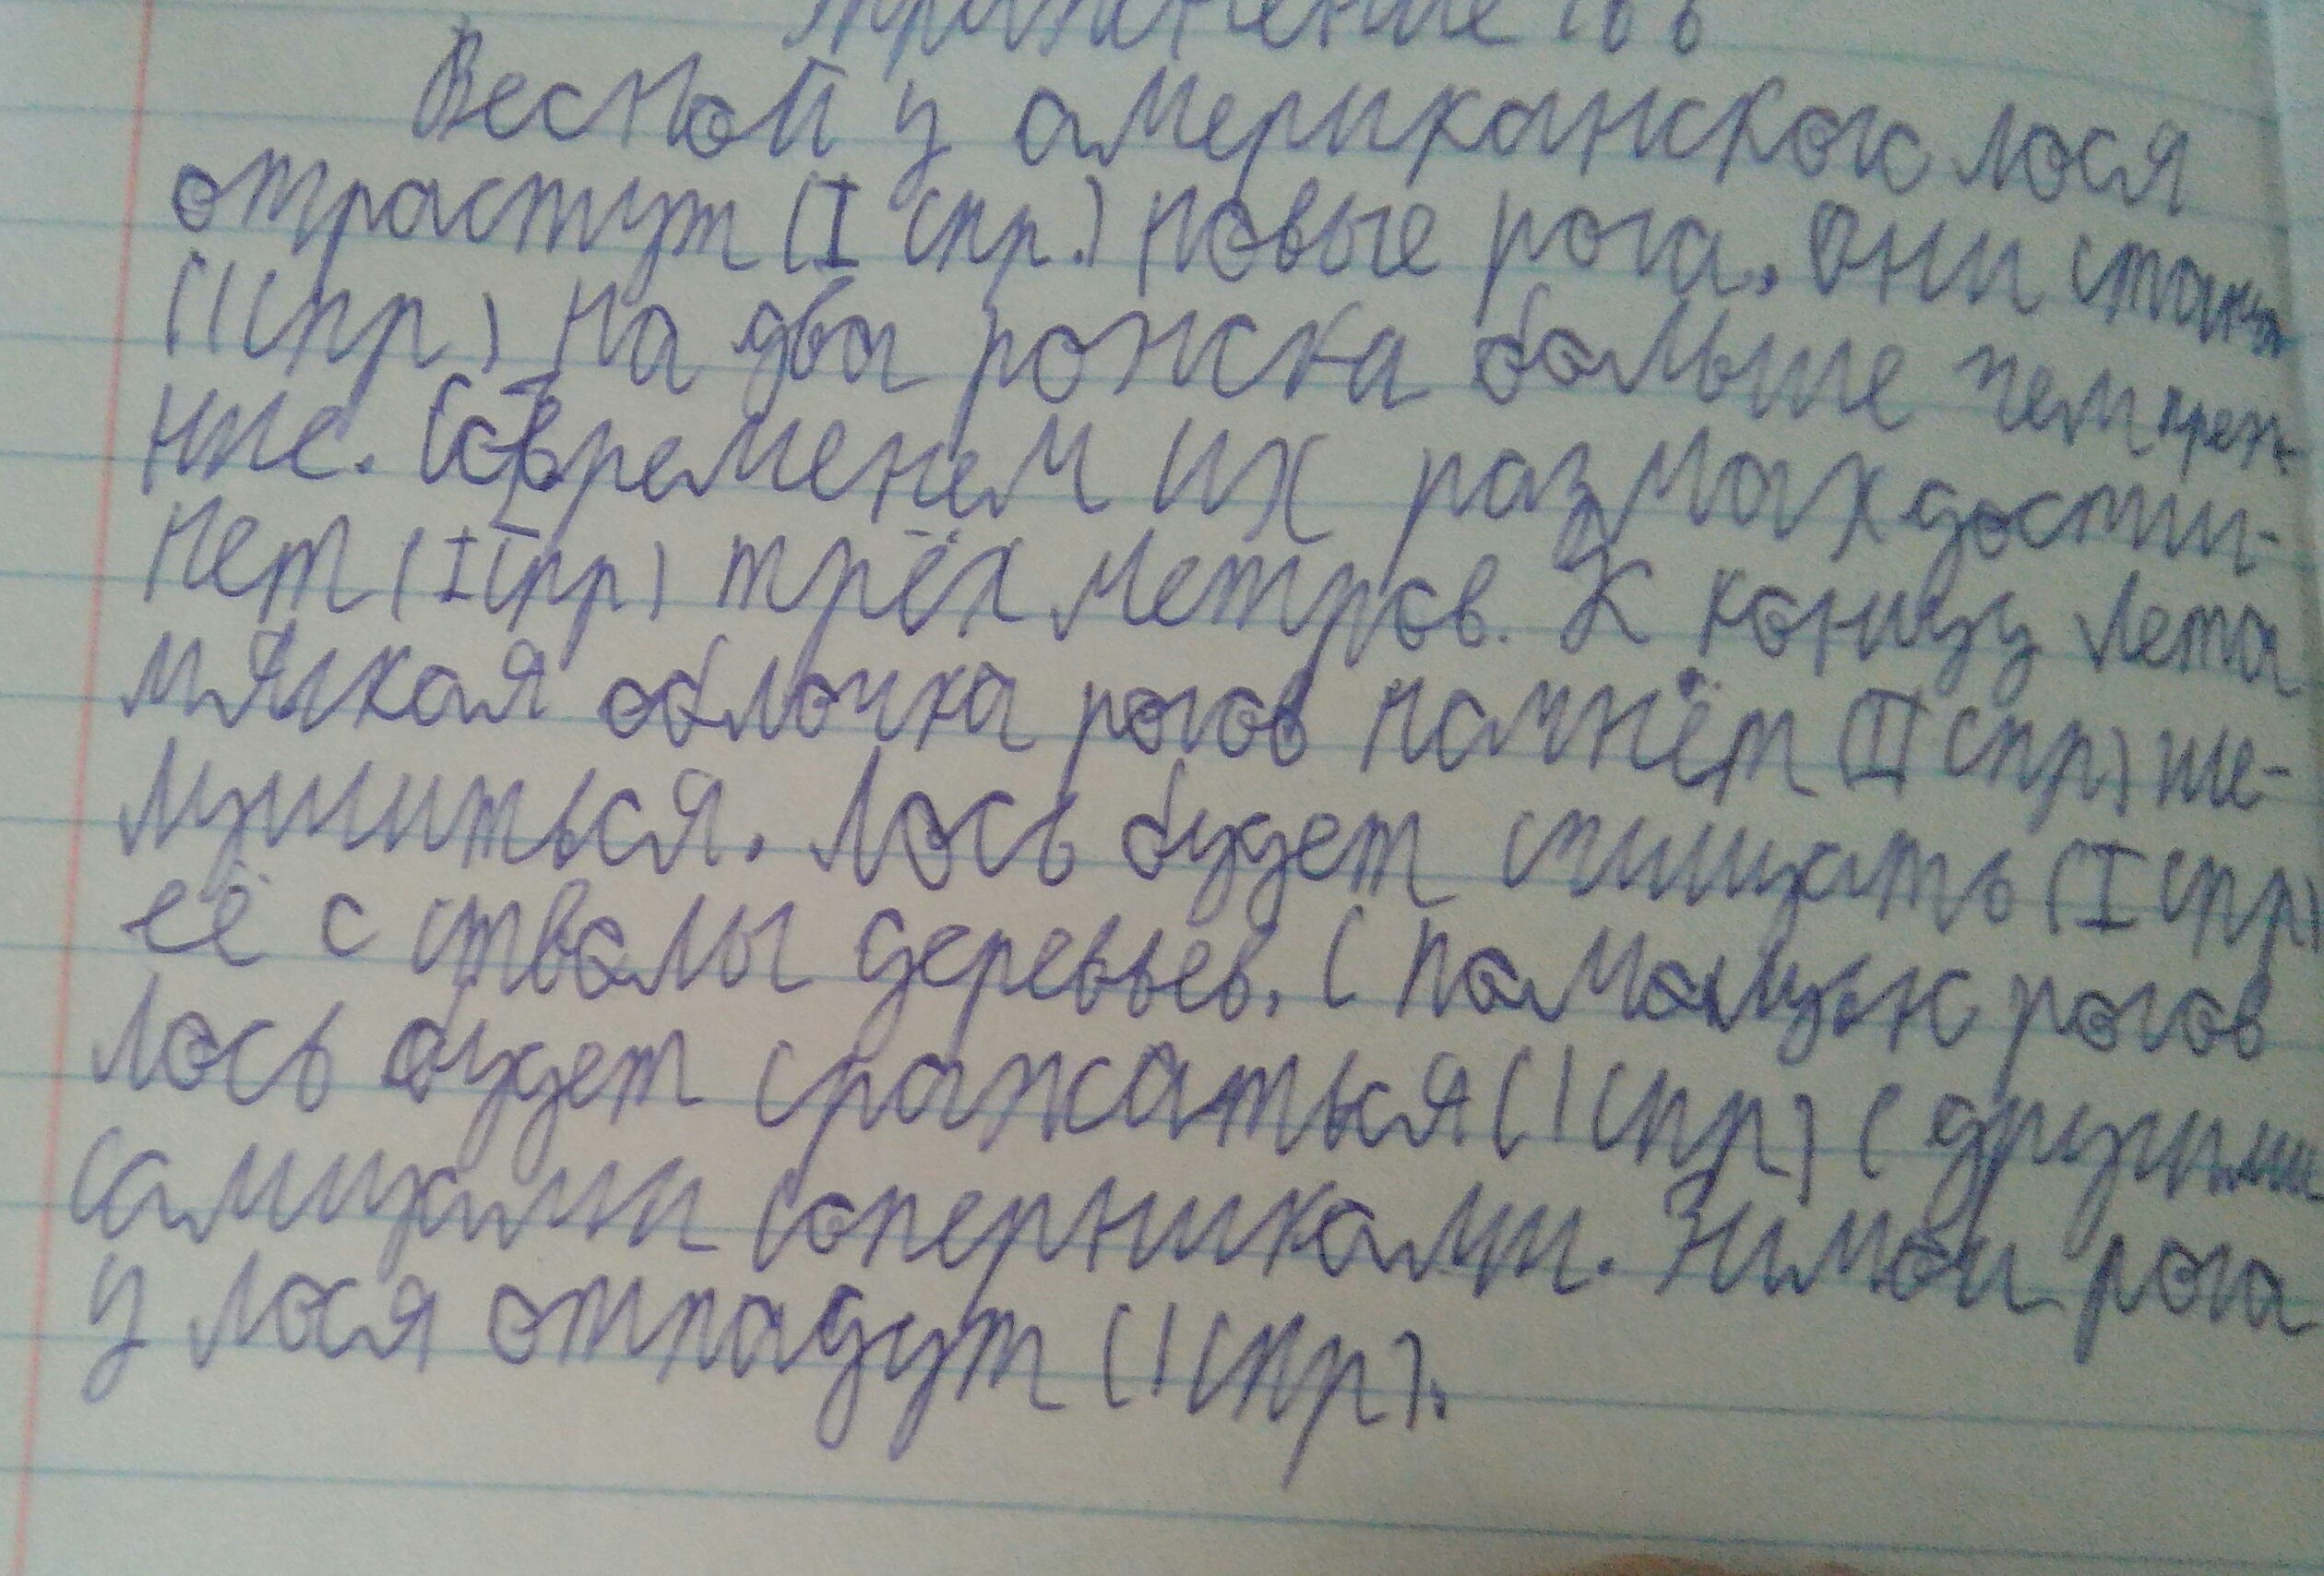 Упражнение 166
Весной у американского лося
отрастут (I спр.) новые рога. Они станут
(I спр) на два рожка больше чем преж-
ние. Современем их размах достиг-
нет (I спр) трёх метров. К концу лета
мягкая оболочка рогов начнёт (II спр) ше-
лушиться. Лось будет счищать (I спр)
её с стволы деревьев. С помощью рогов
лось будет сражаться (I спр) с другими
самцами соперниками. Зимой рога
у лося отпадут (I спр).